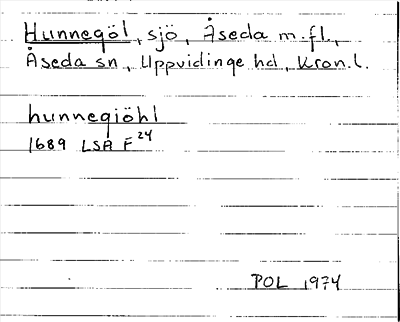 Hunnegöl, sjö, Åseda m.fl.,
Åseda sn, Uppvidinge hd, Kron.l.
hunnegiöhl
1689 LSA F 24
POL 1974